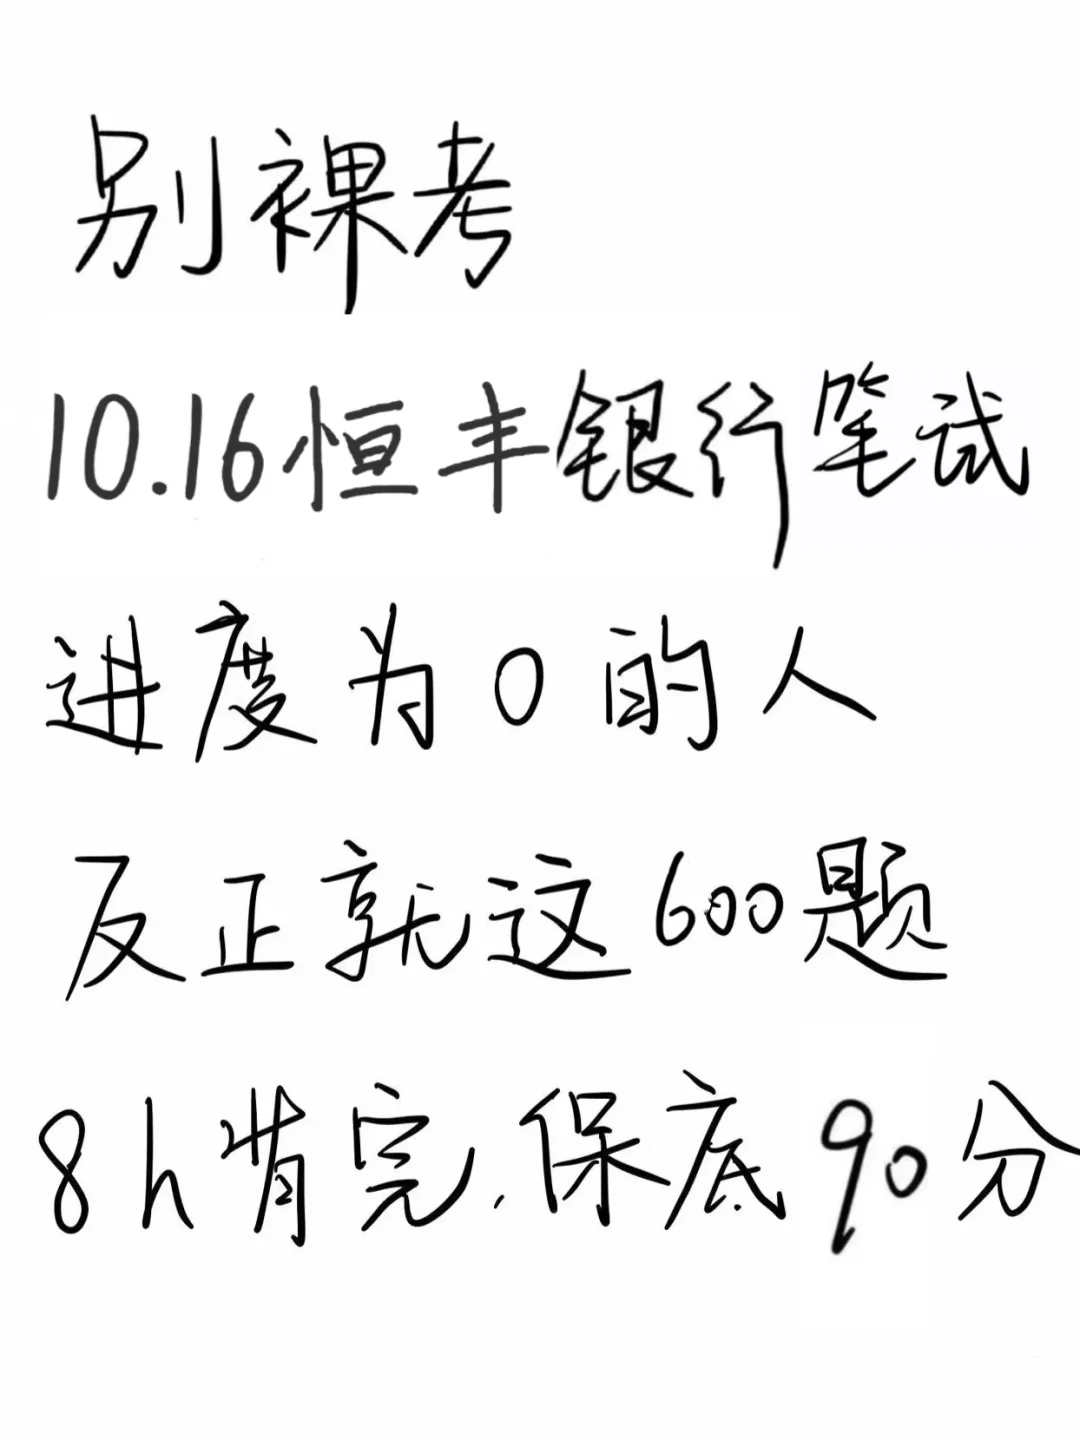 别裸考
10.16恒丰银行笔试
进度为0的人
反正就这600题
8h背完.保底90分